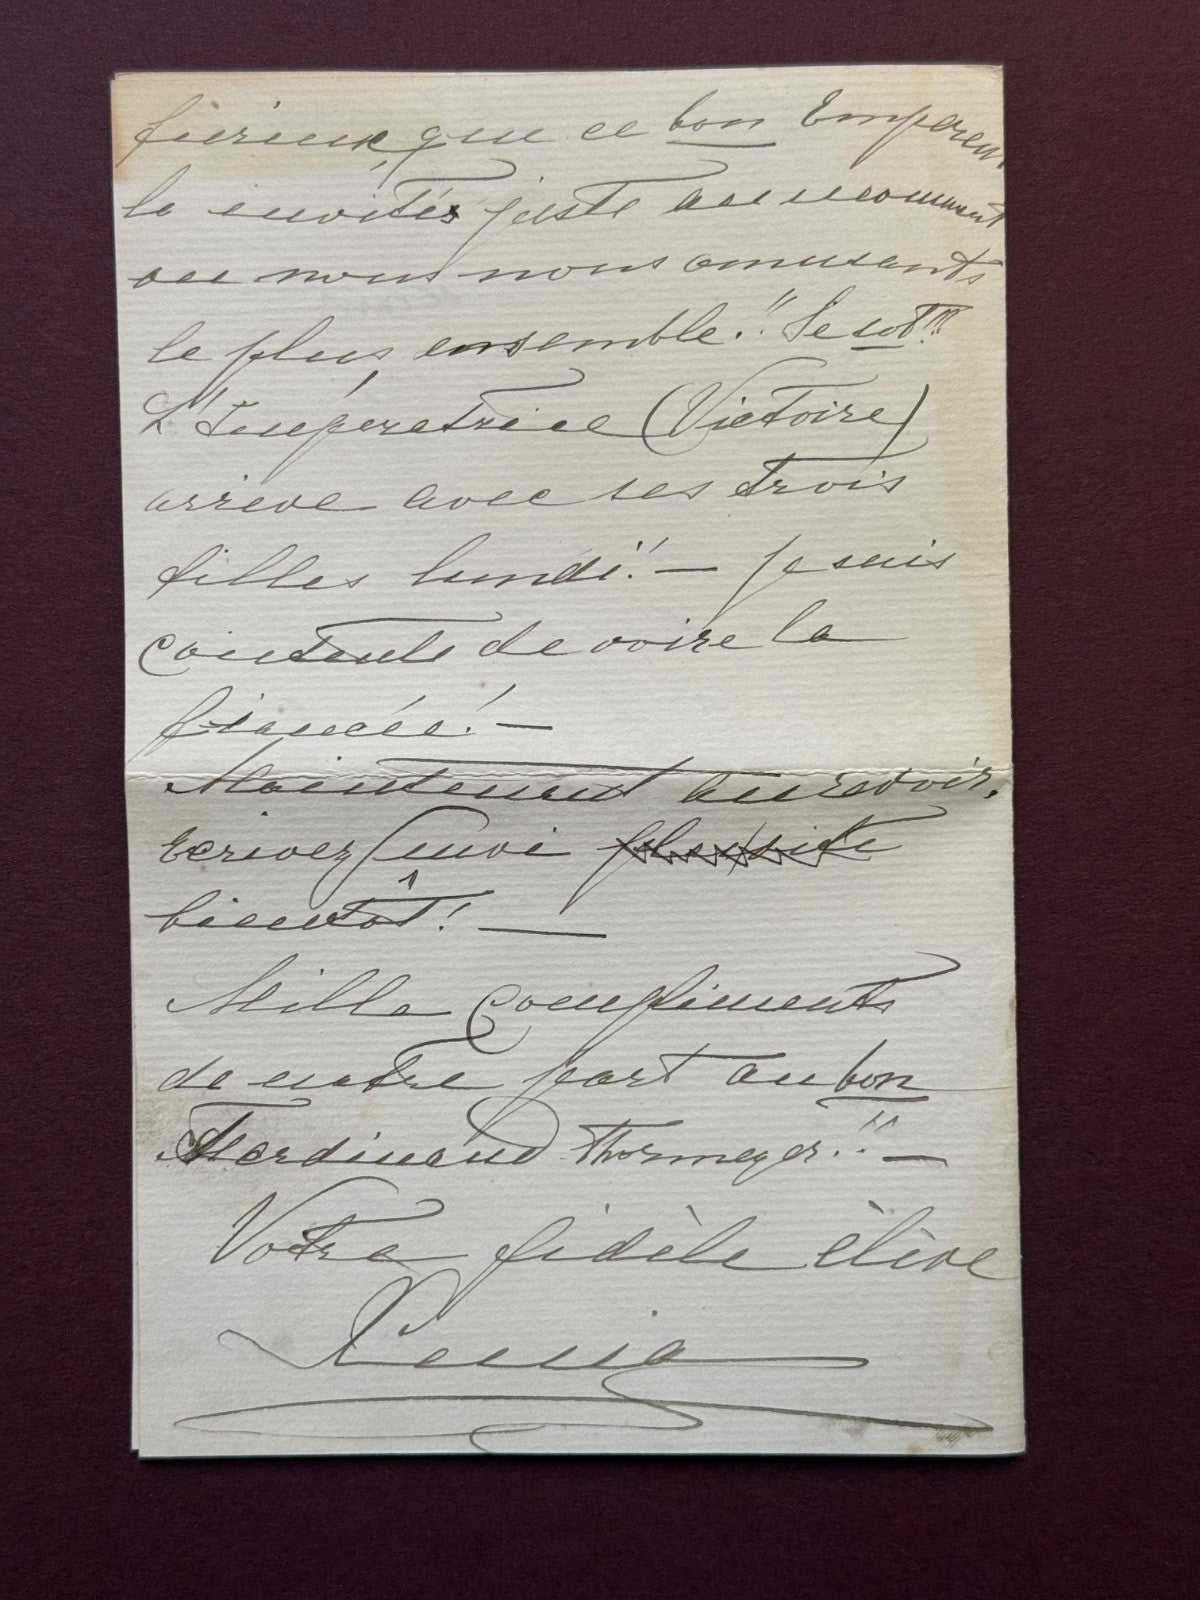 furieux, que ce bon Empereur
la invités juste au moment
ou nous nous amusants
le plus ensemble!! Le sot!!!
L'Impératrice (Victoire)
arrive avec ses trois
filles lundi! — Je suis
contente de voire la
fiancée! —
Maintenant au revoir,
écrivez moi
bientôt! —
Mille compliments
de notre part au bon
Ferdinand Thormeyer!! —
Votre fidèle élève
Xenia